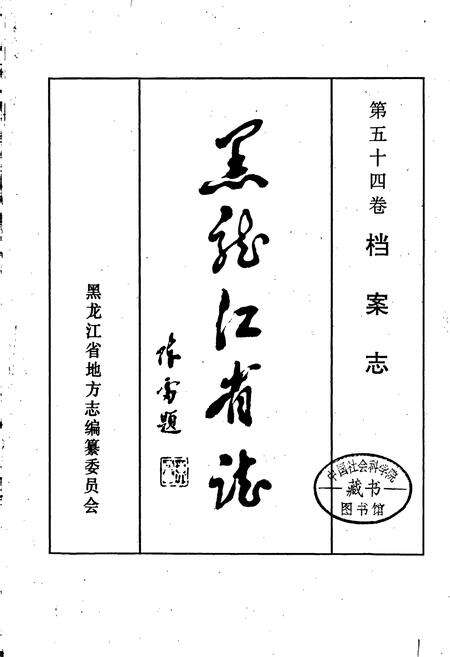 第五十四卷 档案志
黑龍江省志
陈雷题
黑龙江省地方志编纂委员会
中国社会科学院
藏书
图书馆